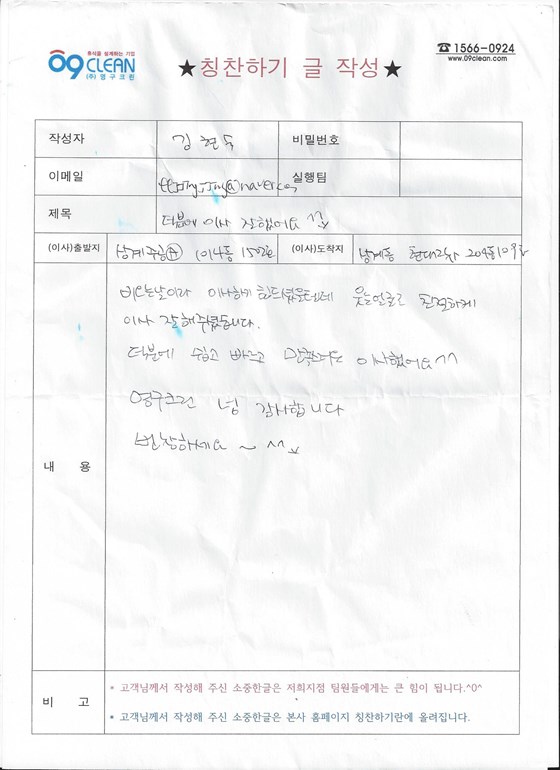 휴식을 설계하는 기업
09 CLEAN
(주)영구크린
★칭찬하기 글 작성★
☎ 1566-0924
www.09clean.com
작성자 김현숙 비밀번호
이메일 @naver.com 실행팀
제목 덕분에 이사 잘했어요 ^^
(이사)출발지 상계주공Ⓐ 104동 1502호 (이사)도착지 상계동 현대2차 204동 109호
비오는날이라 이사하기 힘드셨을텐데 웃는얼굴로 친절하게
이사 잘해주셨습니다.
덕분에 쉽고 빠르고 만족하는 이사했어요^^
영구크린 넘 감사합니다
번창하세요 ~ ^^
내 용
비 고
* 고객님께서 작성해 주신 소중한글은 저희지점 팀원들에게는 큰 힘이 됩니다.^0^
* 고객님께서 작성해 주신 소중한글은 본사 홈페이지 칭찬하기란에 올려집니다.